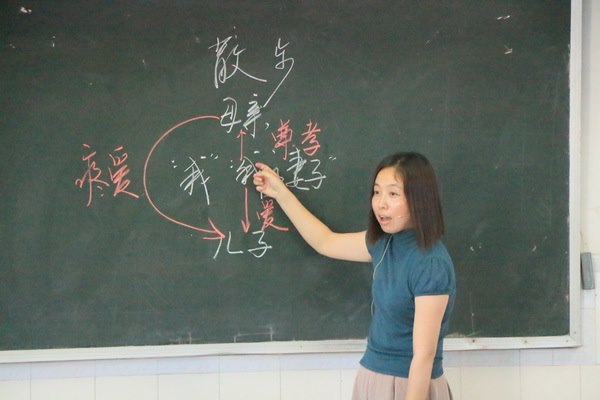 散步
母亲
尊孝
疼爱
"我" 妻子"
爱
儿子